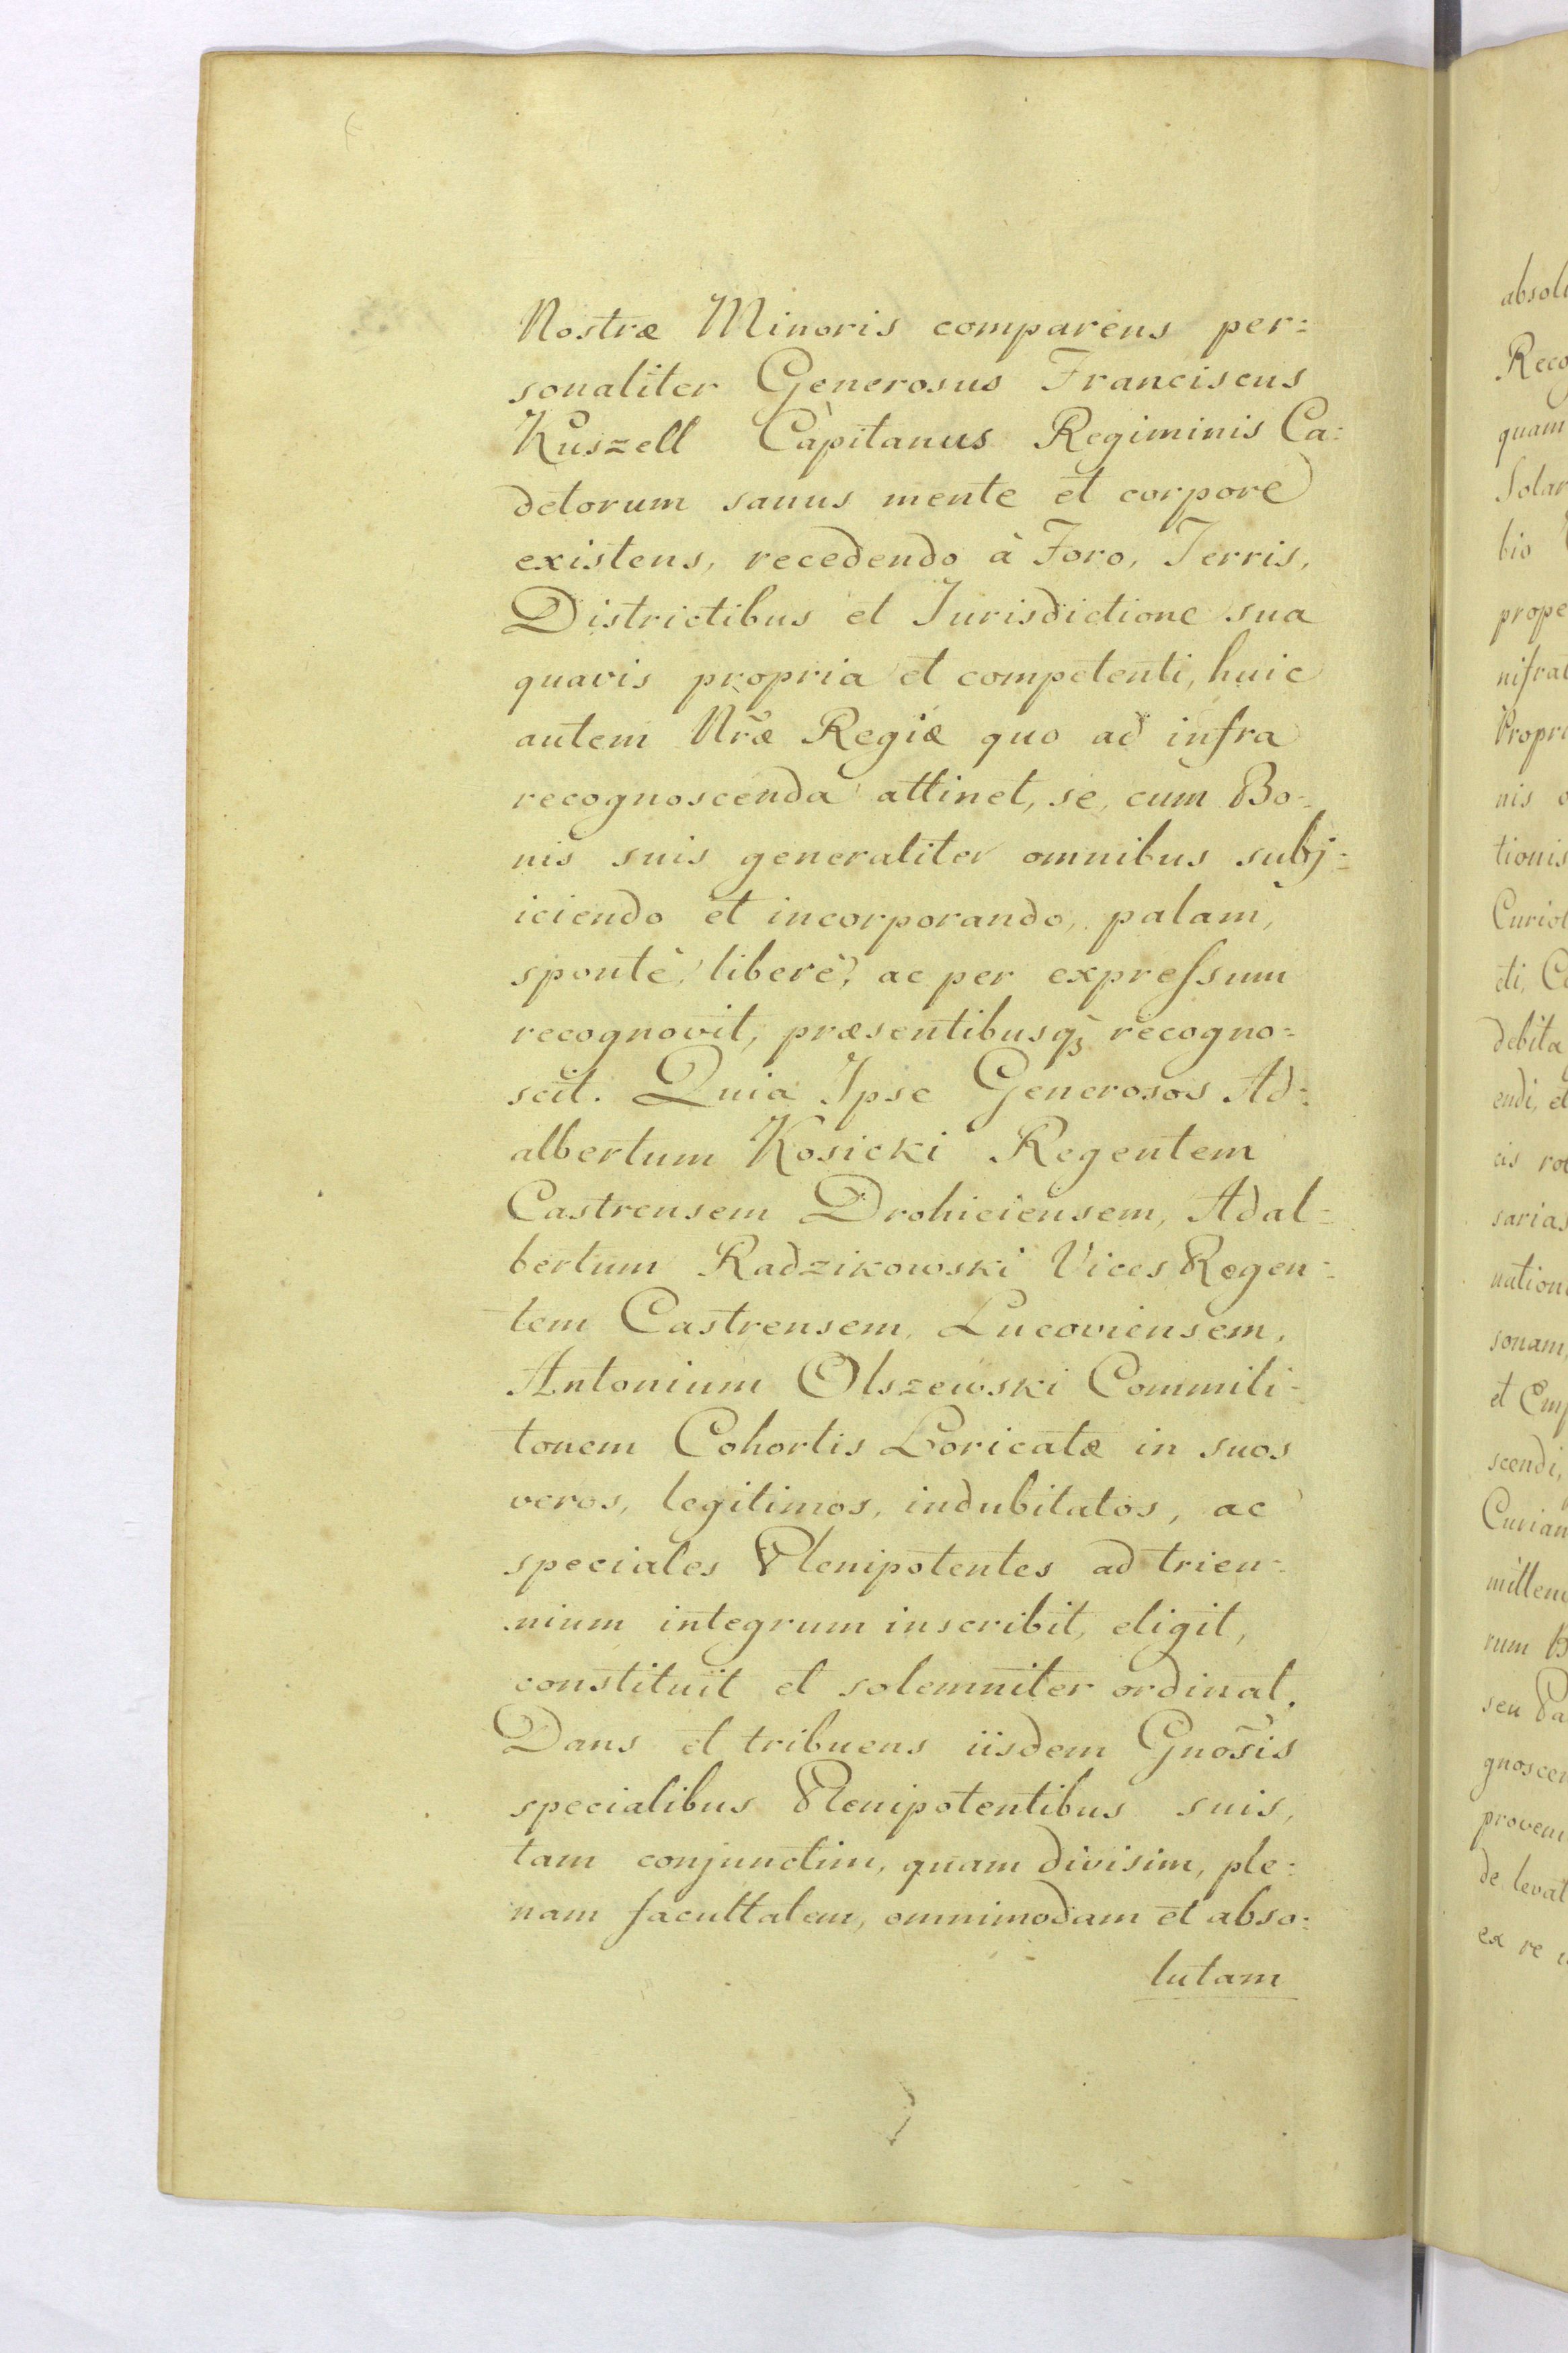 Nostræ Minoris comparens per=
sonaliter Generosus Franciscus
Kuszell Capitanus Regiminis Ca=
detorum sanus mente et corpore
existens, recedendo à Foro, Terris,
Districtibus et Jurisdictione sua
quavis propria et competenti, huic
autem Nræ Regiæ quo ad infra
recognoscenda attinet, se, cum Bo=
nis suis generaliter omnibus subj=
iciendo et incorporando, palam,
spontè, liberè, ac per expreſsum
recognovit, præsentibusqꝫ recogno=
scit. Quia Ipse Generosos Ad=
albertum Kosicki Regentem
Castrensem Drohiciensem, Adal=
bertum Radzikowski Vices Regen=
tem Castrensem, Lucoviensem,
Antonium Olszewski Commili=
tonem Cohortis Loricatæ in suos
veros, legitimos, indubitatos, ac
speciales Plenipotentes ad trien=
nium integrum inscribit, eligit,
constituit et solemniter ordinat.
Dans et tribuens iisdem Gnōsis
specialibus Plenipotentibus suis,
tam conjunctim, quam divisim, ple=
nam facultatem, omnimodam et abso=
lutam
absol
Reco
quam
Solar
bio
prope
nisrat
Propri
nis
tionis
Curiol
eti, C
debita
endi, et
cis rot
sarias
nation
sonam,
et Emp
scendi,
Curian
millen
rum B
seu Pa
gnoscen
proveni
de levat
ex re